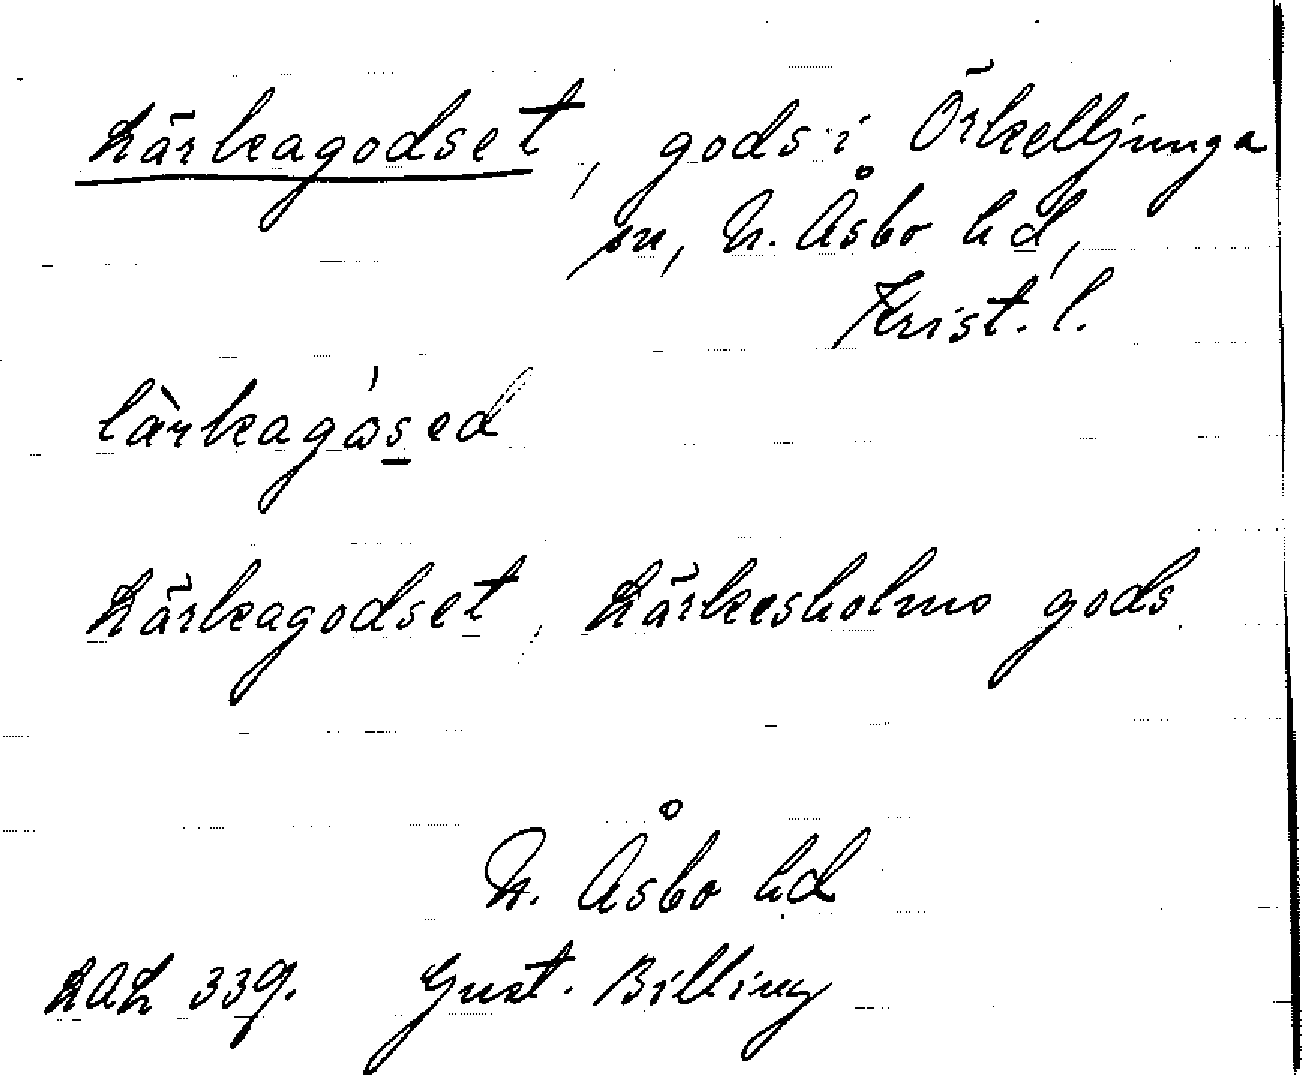 Lärkagodset, gods i Örkelljunga
sn, N. Åsbo hd,
Krist. l.
lärkagósed
Lärkagodset, Lärkesholms gods.
N. Åsbo hd
LAL 339. Gust. Billing